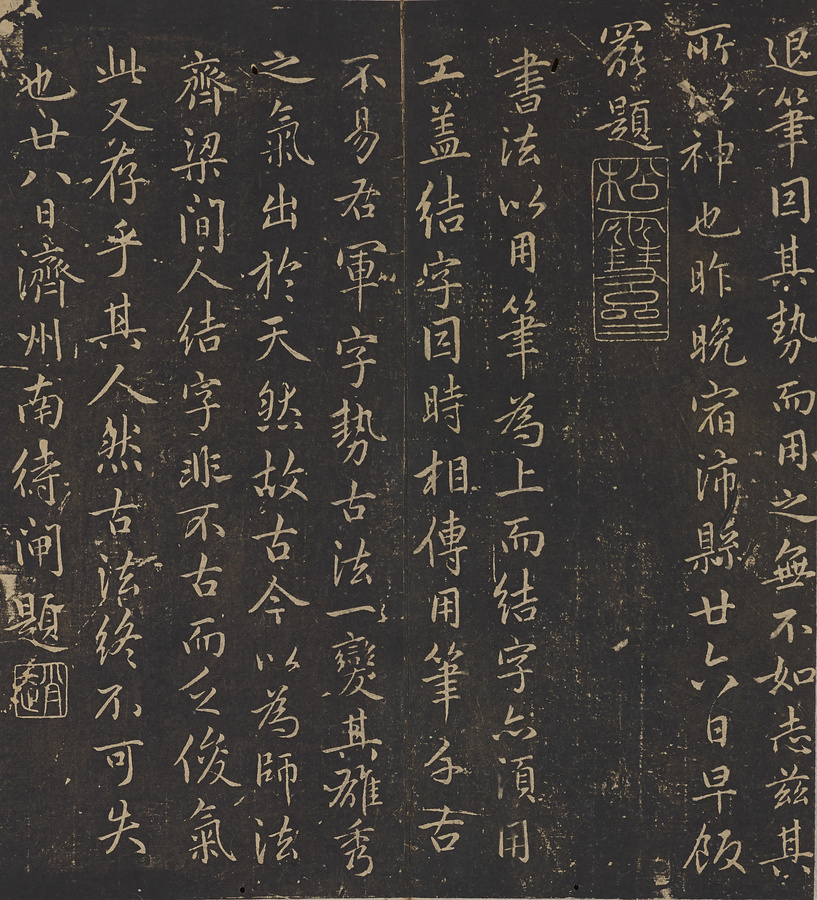 退筆因其勢而用之無不如志兹其
所以神也昨晚宿沛縣廿六日早飯
罷題
松雪齋
書法以用筆為上而結字亦須用
工盖結字因時相傳用筆千古
不易右軍字勢古法一變其雄秀
之氣出於天然故古今以為師法
齊梁間人結字非不古而乏俊氣
此又存乎其人然古法終不可失
也廿八日濟州南待閘題
趙